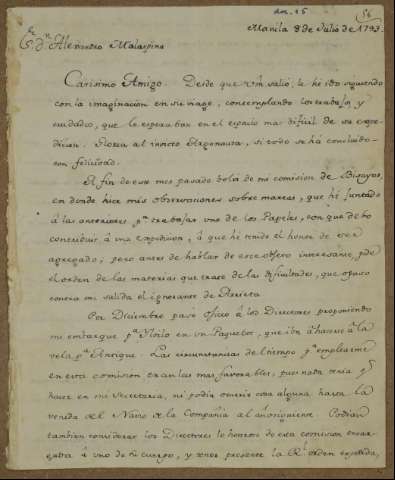 an. 15
56
Manila 8 de Julio de 1793.
S.r d.n Alexandro Malaspina
Carisimo Amigo. Desde que Vm salió, le hé ido siguiendo
con la imaginacion en su viage, contemplando los trabajos y
cuidados, que le esperaban en el espacio mas dificil de su expe
dicion. Gloria al invicto Argonauta, si todo se há concluido
con felicidad.
El fin de este mes pasado bolví de mi comision de Bisayas,
en donde hice mis observaciones sobre mareas, que hé juntado
á las anteriores p.a trabajar uno de los Papeles, con que debo
contribuir á una expedicion, á que hé tenido el honor de ser
agregado; pero antes de hablar de este objeto interesante, pide
el orden de las materias que trate de las dificultades, que opuso
contra mi salida el ignorante de Arrieta
Por Diciembre pasé oficio á los Directores proponiendo
mi embarque p.a Iloilo en un Paquebot, que iba á hacerse á la
vela p.a Antique. Las circunstancias del tiempo p.a emplearme
en esta comision eran las mas favorables, pues nada tenia q.e
hacer en mi Secretaria, ni podia ocurrir cosa alguna hasta la
venida del Navio de la Compañia al año siguiente. Podian
tambien considerar los Directores lo honroso de esta comision encar
gada á uno de su cuerpo, y tener presente la R.l orden expedida,